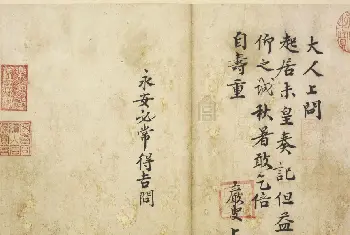 大人上問
起居未皇奏記但益
仰之誠秋暑敢乞倍
自壽重
永安必常得吉問